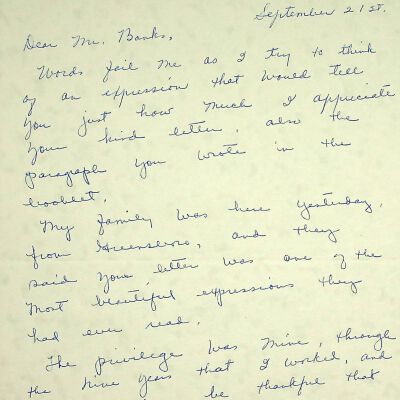 September 21st.
Dear Mr. Banks,
Words fail me as I try to think
of an expression that would tell
you just how much I appeciate
your kind letter, also the
paragraph you wrote in the
booklet.
My family was here yesterday,
from Greensboro, and they
said your letter was one of the
most beautiful expressions they
had ever read.
The privilege was mine, through
the nine years that I worked, and
be thankful that